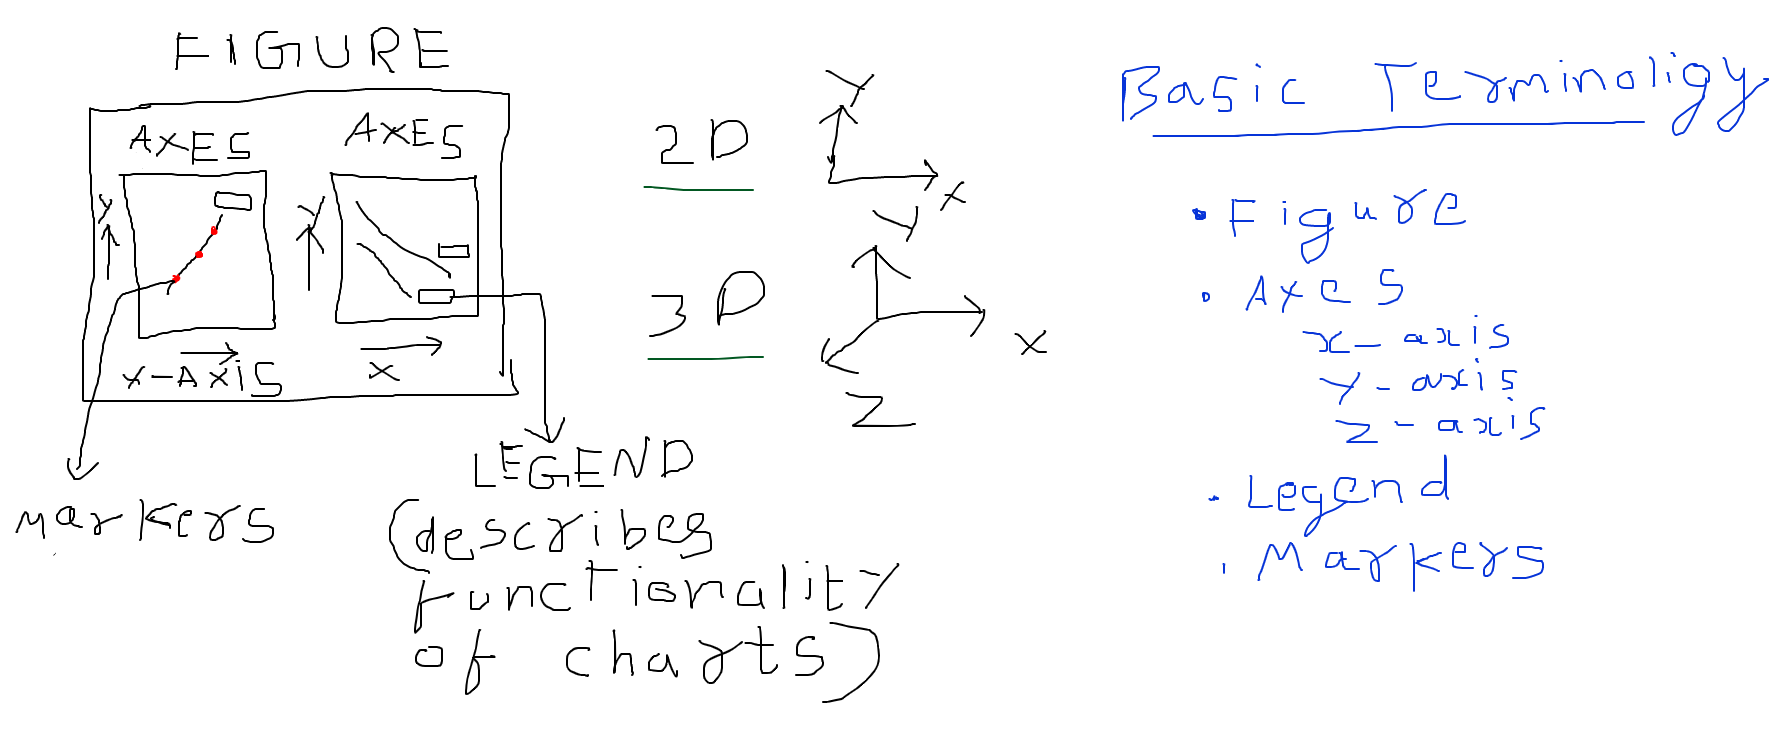 FIGURE
AXES
AXES
Y
Y
X-AXIS
X
markers
LEGEND
(describes
functionality
of charts)
2D
Y
X
3D
Y
X
Z
Basic Terminoligy
• Figure
• Axes
x-axis
Y-axis
Z-axis
• Legend
• Markers